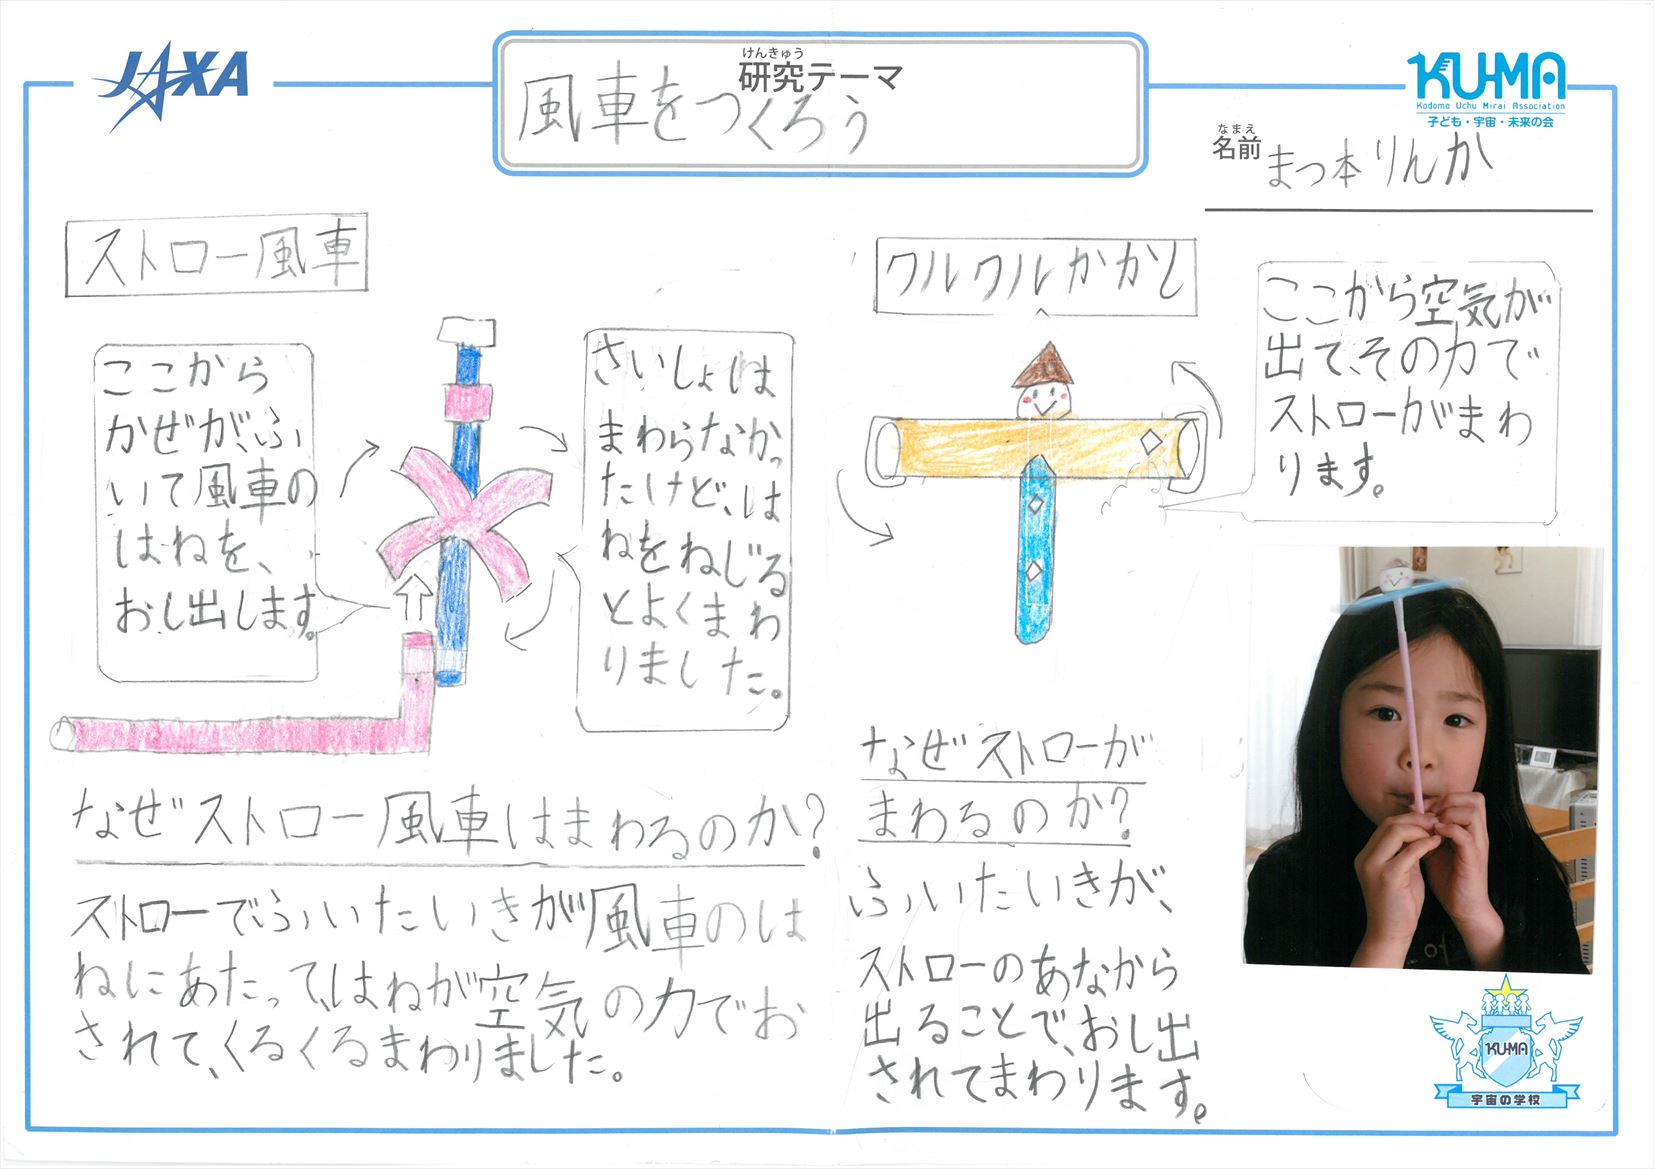 JAXA
けんきゅう
研究テーマ
風車をつくろう
KU-MA
Kodomo Uchu Mirai Association
子ども・宇宙・未来の会
なまえ
名前
まつ本りんか
ストロー風車
ここから
かぜが、ふ
いて風車の
はねを、
おし出します。
さいしょは
まわらなかっ
たけど、は
ねをねじる
とよくまわ
りました。
なぜストロー風車はまわるのか?
ストローでふいたいきが風車のは
ねにあたって、はねが空気の力でお
されて、くるくるまわりました。
クルクルかかし
ここから空気が
出て、その力で
ストローがまわ
ります。
なぜストローが
まわるのか?
ふいたいきが、
ストローのあなから
出ることで、おし出
されてまわります。
KU-MA
宇宙の学校